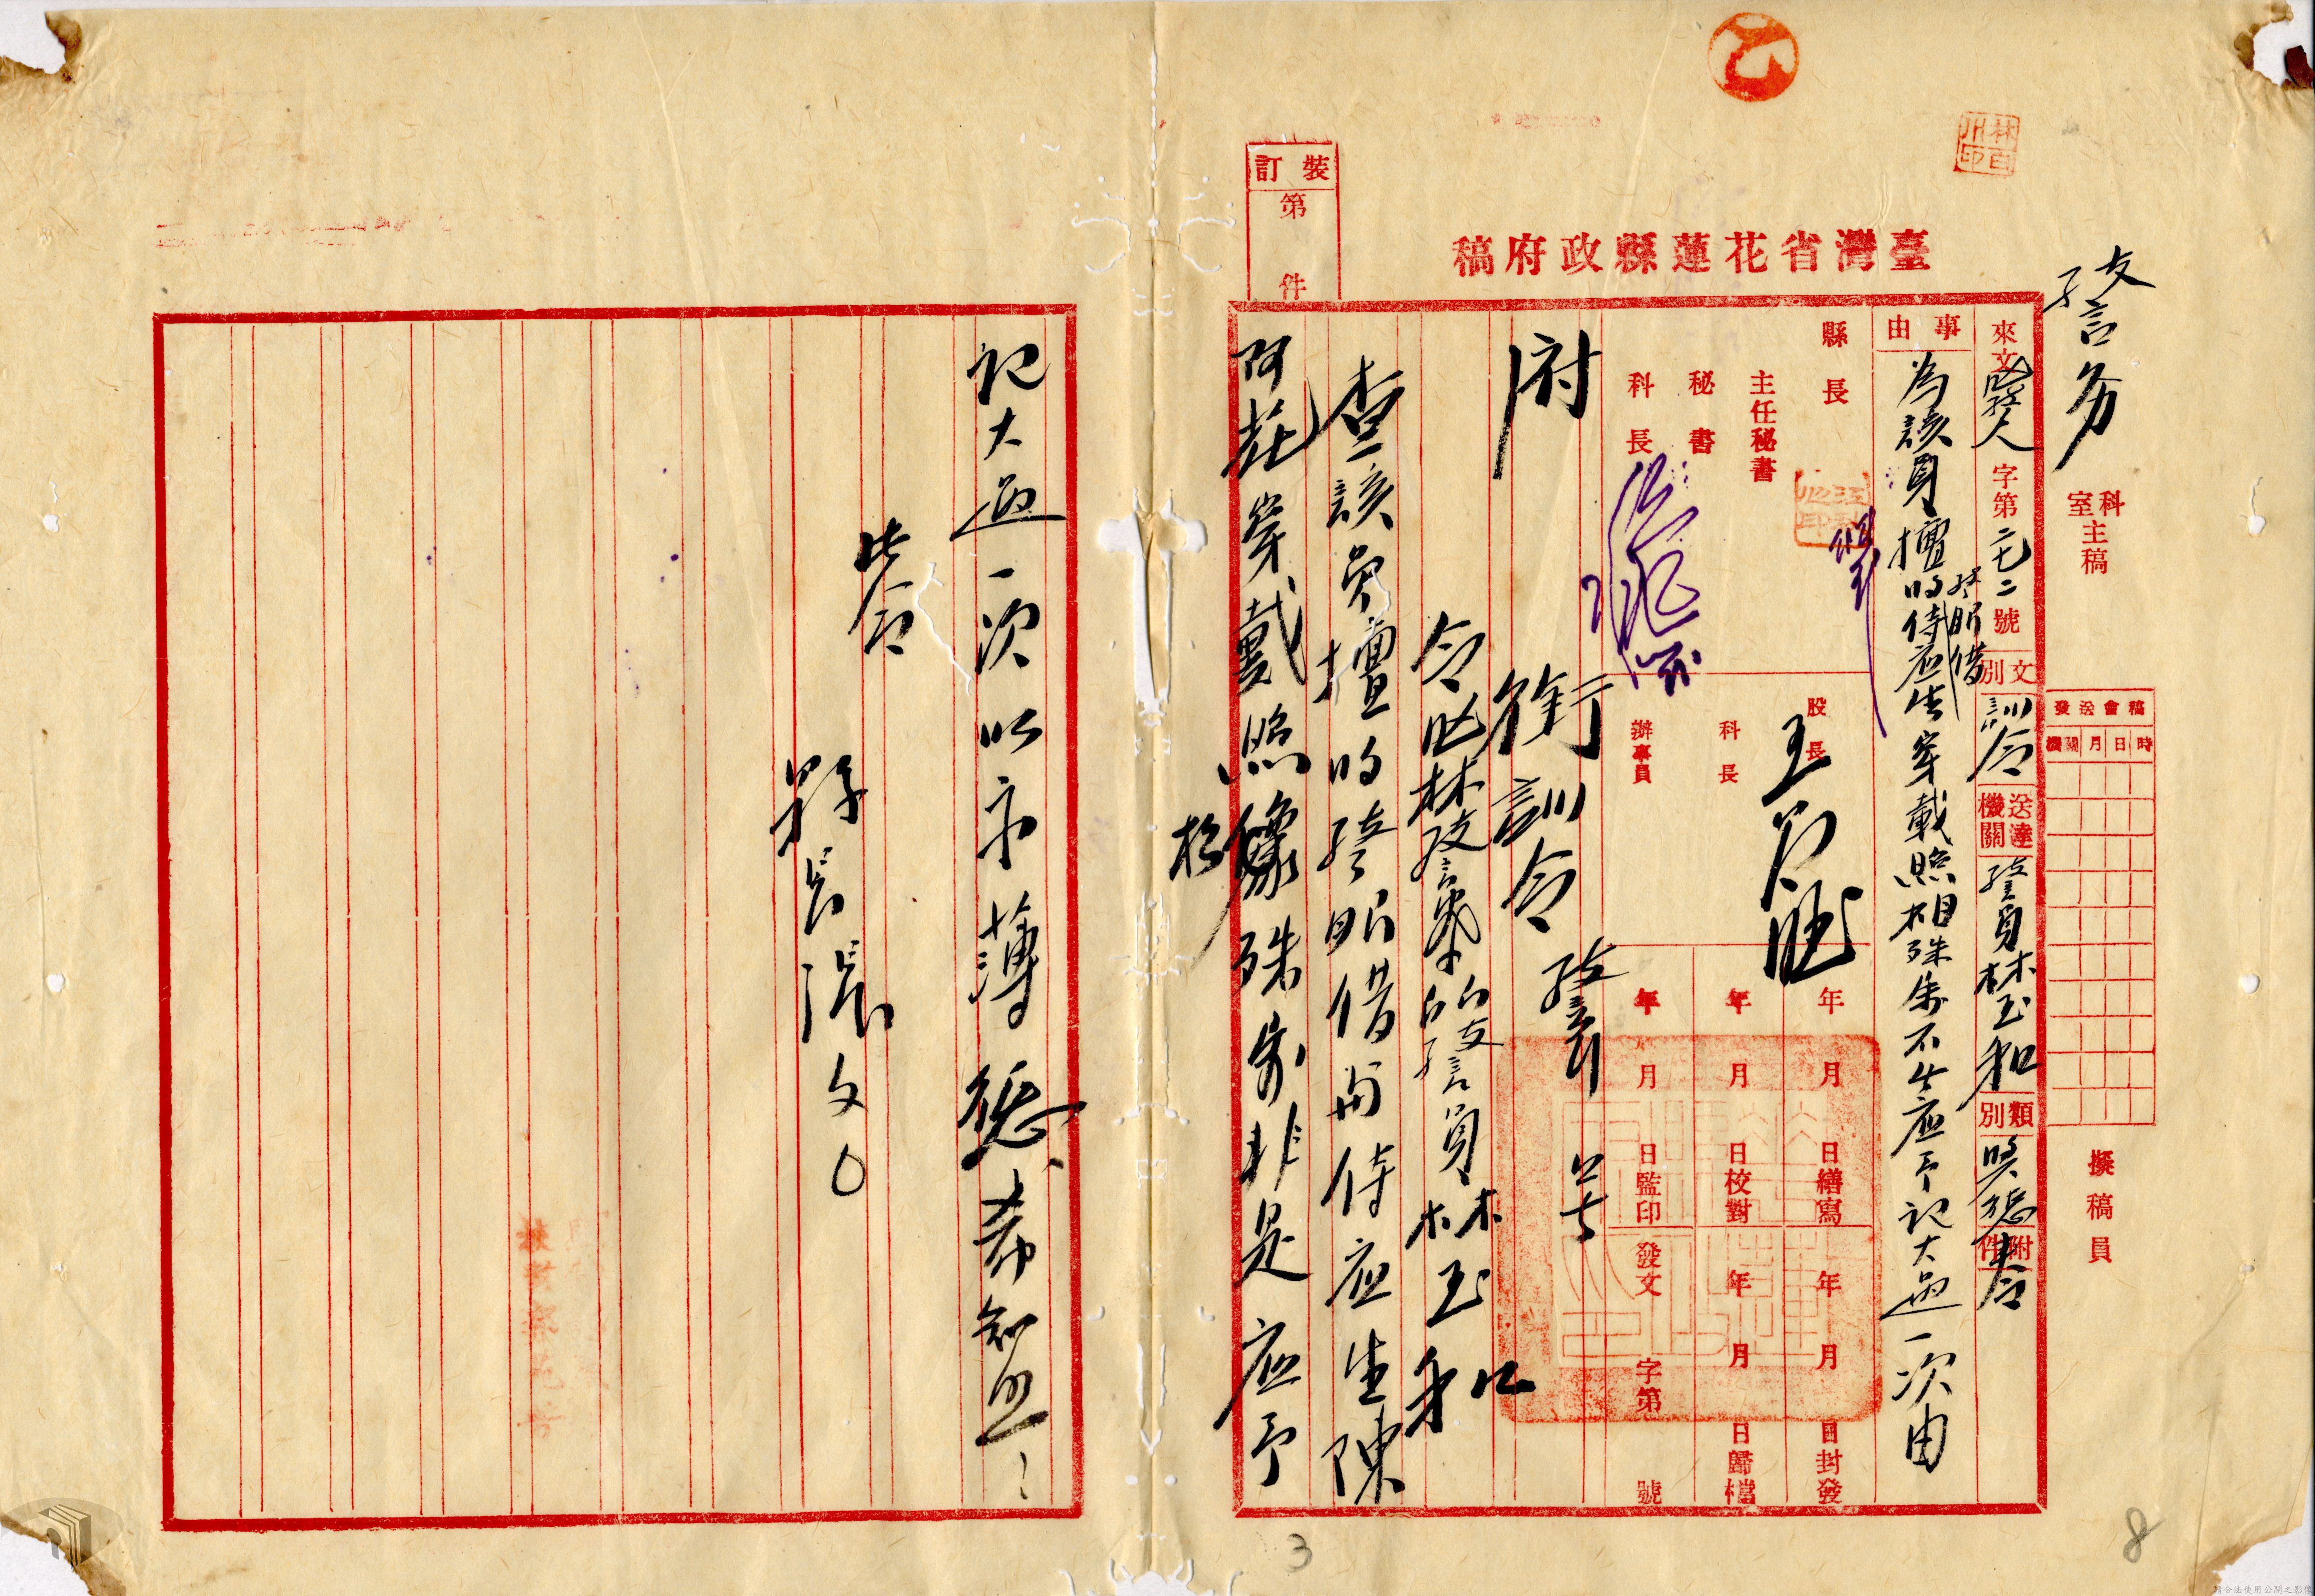 林百川印
臺灣省花蓮縣政府稿
裝訂
第 件
警務 科室主稿 擬稿員
稿會送發
時日月機關
來文 字第 號 文別 訓令 送達機關 警員林玉和 類別 獎懲 附件
事由 為該員擅將警服借侍應生穿戴照相殊失不生應予記大過一次由
縣長
主任秘書
秘書
科長
股長
科長
辦事員
年 月 日繕寫 年 月 日封發
年 月 日校對 年 月 日歸檔
年 月 日監印 發文 字第 號
府銜訓令 警
令 警員林玉和
查該員擅將警服借與侍應生陳
阿花穿戴照像殊屬非是應予
記大過一次以示薄懲希知照
此令
縣長張文〇
3
8